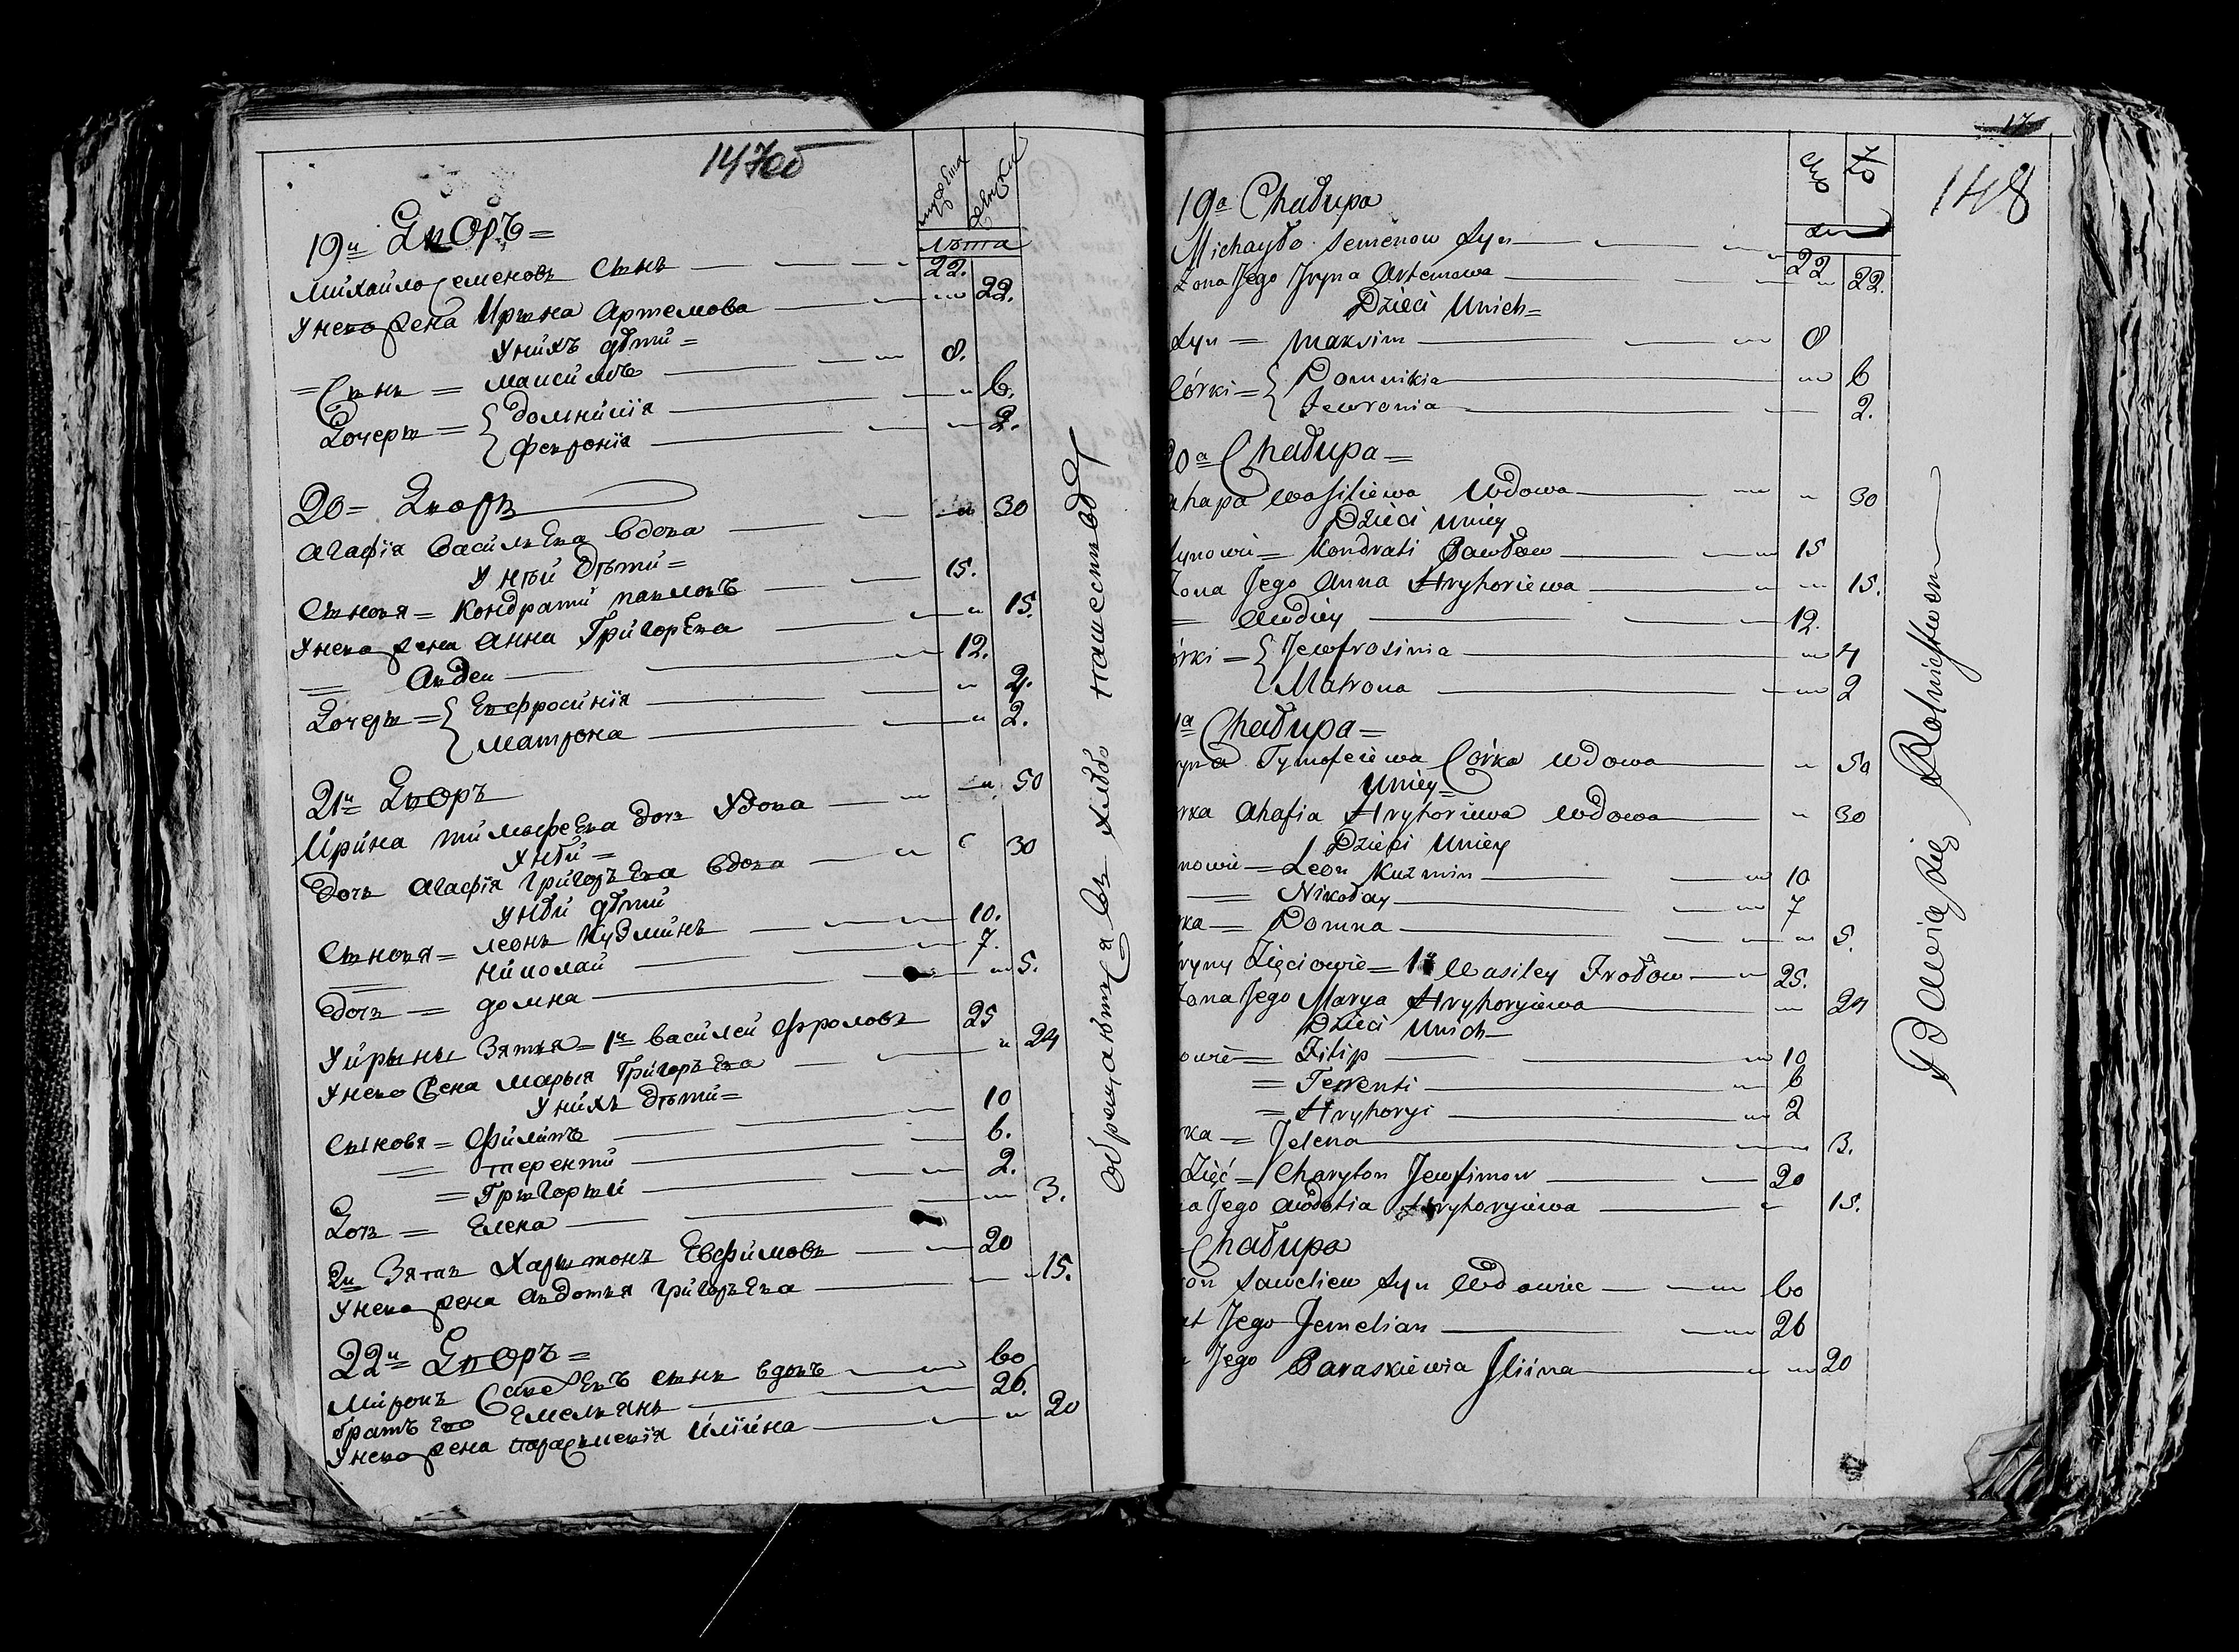 147об
мужеска
женски
лѣта
19й Дворъ =
Михайло Семеновъ Сынъ 22.
У него жена Ирына Артемова 22.
У нихъ дѣти =
= Сынъ = Максимъ 8.
Дочеры = Домникія 6.
Февронія 2.
20 = Дворъ
Агафія Васильева вдова 30
У нѣй дѣти =
Сыновя = Кондратій Павловъ 15.
У него жена Анна Григорева 15.
= Авдеи 12.
Дочеры = Евфросинія 4.
Матрона 2.
21й Дворъ
Ирина Тимофеева дочь удова 50
У нѣй =
Дочь Агафія Григорьева вдова 30
У нѣй дѣти
Сыновя = Леонъ Кузминъ 10.
Николай 7.
Дочь = Домна 5.
У Ирыны Зятья = 1й Василей Фроловъ 25
У него жена Марыя Григорьева 24
У нихъ дѣти =
Сыновя = Филипъ 10
= Терентій 6.
= Грыгорый 2.
Дочь = Елена 3.
2й Зять Харытонъ Евфимовъ 20
У него жена Авдотья Григорьева 15.
22й Дворъ =
Миронъ Савельевъ сынъ вдовъ 60
братъ Его Емельянъ 26.
У него жена Параскивія Иліина 20
Обращаются въ хлѣбо
17
148
19a Chałupa
Michayło Semenow Syn 22
Zona Jego Jryna Artemowa 22.
Dzieci Unich =
Syn = Maksim 8
Córki = Domnikia 6
Fewronia 2.
20a Chałupa =
ahapa Wasiliewa Wdowa 30
Dzieci Uniey
Synowie = Kondrati Pawłow 15
Zona Jego Anna Hryhoriewa 15.
= Awdiey 12.
órki = Jewfrosinia 4
Matrona 2
1a Chałupa =
yna Tymofeiewa Córka Wdowa 50
Uniey =
rka Ahafia Hryhoriewa Wdowa 30
Dzieci Uniey
nowie = Leon Kuzmin 10
= Nikołay 7
rka = Domna 5.
ryny Zięciowie = 1й Wasiley Frołow 25.
Zona Jego Marya Hryhoryiewa 24
Dzieci Unich =
owie = Filip 10
= Terenti 6
= Hryhoryi 2
rka = Jelena 3.
Zięć = Charyton Jewfimow 20
na Jego Awdotia Hryhoryiewa 15.
Chałupa
ron Saweliew Syn Wdowiec 60
at Jego Jemelian 26
Jego Paraskiewia Jliina 20
Bawią się Rolnictwem